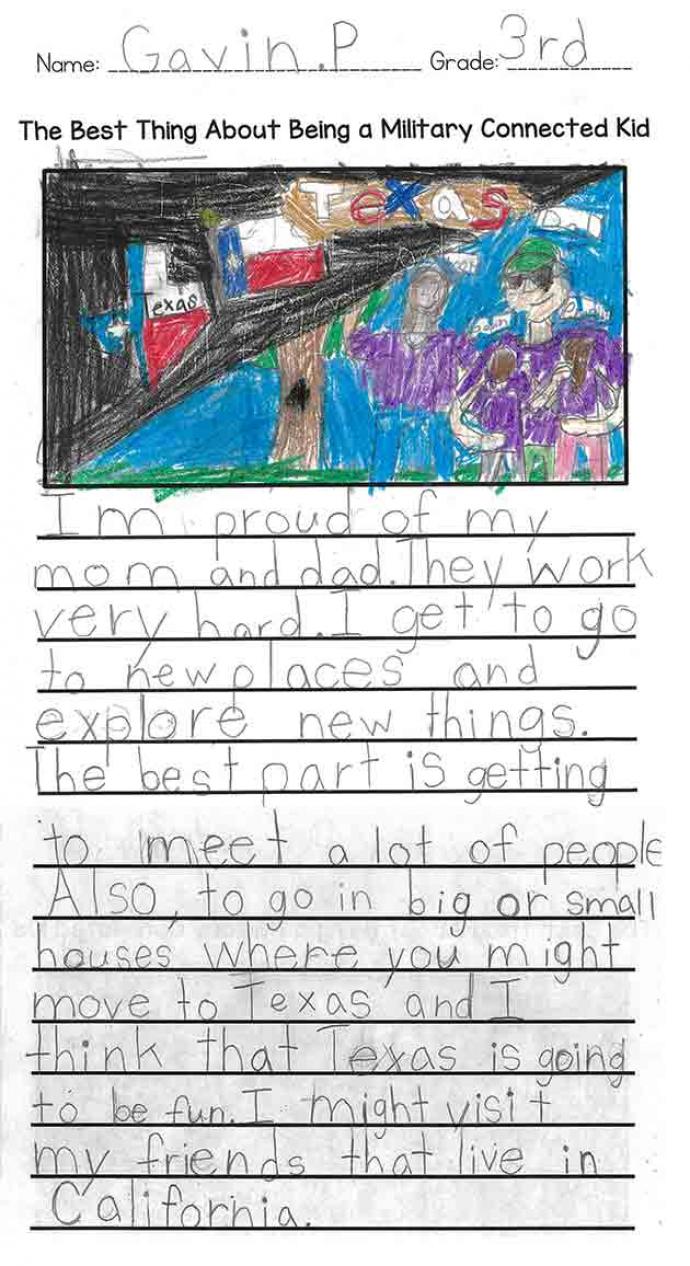 Name: Gavin.P Grade: 3rd
The Best Thing About Being a Military Connected Kid
Texas
Texas
Dad
Im proud of my
mom and dad. They work
very hard. I get to go
to new places and
explore new things.
The best part is getting
to meet a lot of people
Also, to go in big or small
houses where you might
move to Texas and I
think that Texas is going
to be fun. I might visit
my friends that live in
California.